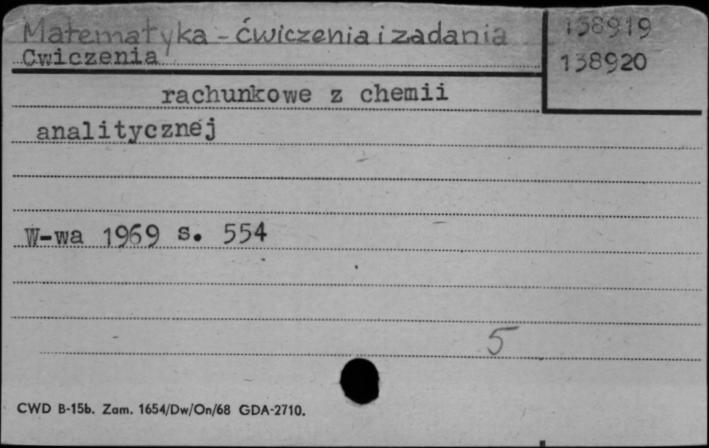 Matematyka - ćwiczenia i zadania 158919
Cwiczenia 138920
rachunkowe z chemii
analitycznej
W-wa 1969 s. 554
5
CWD B-15b. Zam. 1654/Dw/On/68 GDA-2710.